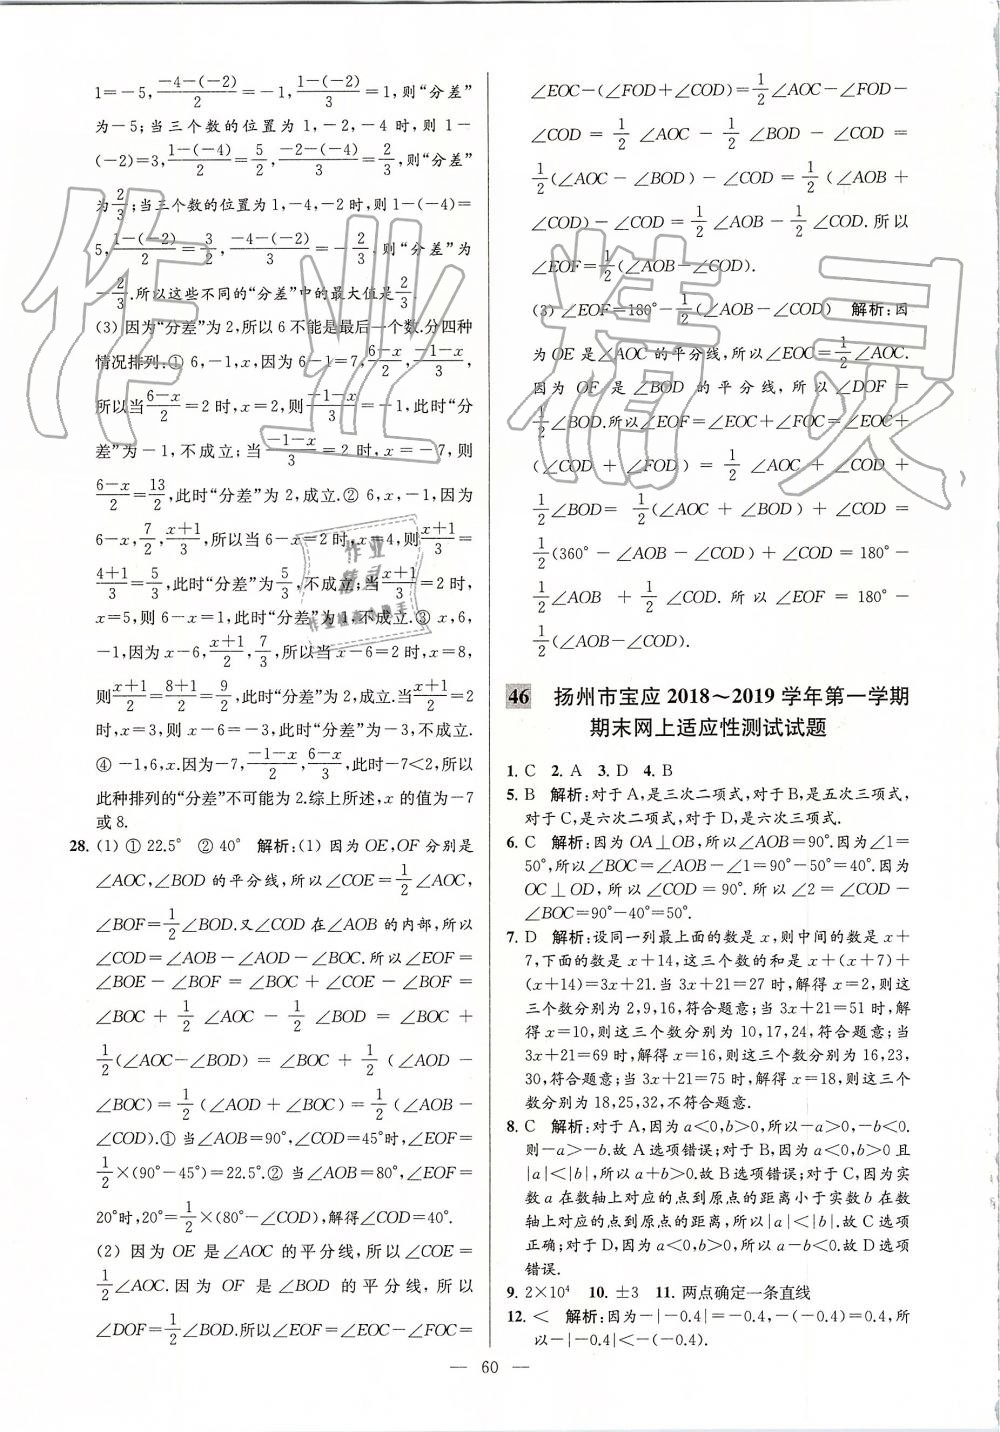 1=-5, (-4-(-2))/2=-1, (1-(-2))/3=1,则“分差”
为-5;当三个数的位置为 1,-2,-4 时,则 1-
(-2)=3, (1-(-4))/2=5/2, (-2-(-4))/3=2/3,则“分差”
为2/3;当三个数的位置为 1,-4,-2 时,则 1-(-4)=
5, (1-(-2))/2=3/2, (-4-(-2))/3=-2/3,则“分差”为
-2/3.所以这些不同的“分差”中的最大值是2/3.
(3) 因为“分差”为 2,所以 6 不能是最后一个数.分四种
情况排列.① 6,-1,x,因为 6-(-1)=7, (6-x)/2, (-1-x)/3,
所以当(6-x)/2=2 时,x=2,则(-1-x)/3=-1,此时“分
差”为-1,不成立;当(-1-x)/3=2 时,x=-7,则
(6-x)/2=13/2,此时“分差”为 2,成立.② 6,x,-1,因为
6-x, 7/2, (x+1)/3,所以当 6-x=2 时,x=4,则(x+1)/3=
(4+1)/3=5/3,此时“分差”为5/3,不成立;当(x+1)/3=2 时,
x=5,则 6-x=1,此时“分差”为 1,不成立.③ x,6,
-1,因为 x-6, (x+1)/2, 7/3,所以当 x-6=2 时,x=8,
则(x+1)/2=(8+1)/2=9/2,此时“分差”为 2,成立;当(x+1)/2=2
时,x=3,则 x-6=-3,此时“分差”为-3,不成立.
④ -1,6,x.因为-7, (-1-x)/2, (6-x)/3,此时-7<2,所以
此种排列的“分差”不可能为 2.综上所述,x 的值为-7
或 8.
28. (1) ① 22.5° ② 40° 解析:(1) 因为 OE,OF 分别是
∠AOC,∠BOD 的平分线,所以∠COE=1/2∠AOC,
∠BOF=1/2∠BOD.又∠COD 在∠AOB 的内部,所以
∠COD=∠AOB-∠AOD-∠BOC.所以∠EOF=
∠BOE-∠BOF=∠BOC+∠COE-∠BOF=
∠BOC+1/2∠AOC-1/2∠BOD=∠BOC+
1/2(∠AOC-∠BOD)=∠BOC+1/2(∠AOD-
∠BOC)=1/2(∠AOD+∠BOC)=1/2(∠AOB-
∠COD).① 当∠AOB=90°,∠COD=45°时,∠EOF=
1/2×(90°-45°)=22.5°.② 当∠AOB=80°,∠EOF=
20°时,20°=1/2×(80°-∠COD),解得∠COD=40°.
(2) 因为 OE 是∠AOC 的平分线,所以∠COE=
1/2∠AOC.因为 OF 是∠BOD 的平分线,所以
∠DOF=1/2∠BOD.所以∠EOF=∠EOC-∠FOC=
∠EOC-(∠FOD+∠COD)=1/2∠AOC-∠FOD-
∠COD=1/2∠AOC-1/2∠BOD-∠COD=
1/2(∠AOC-∠BOD)-∠COD=1/2(∠AOB+
∠COD)-∠COD=1/2∠AOB-1/2∠COD.所以
∠EOF=1/2(∠AOB-∠COD).
(3) ∠EOF=180°-1/2(∠AOB-∠COD) 解析:因
为 OE 是∠AOC 的平分线,所以∠EOC=1/2∠AOC.
因为 OF 是∠BOD 的平分线,所以∠DOF=
1/2∠BOD.所以∠EOF=∠EOC+∠FOC=∠EOC+
(∠COD+∠FOD)=1/2∠AOC+∠COD+
1/2∠BOD=1/2(∠AOC+∠BOD)+∠COD=
1/2(360°-∠AOB-∠COD)+∠COD=180°-
1/2∠AOB+1/2∠COD.所以∠EOF=180°-
1/2(∠AOB-∠COD).
46 扬州市宝应 2018~2019 学年第一学期
期末网上适应性测试试题
1. C 2. A 3. D 4. B
5. B 解析:对于 A,是三次二项式,对于 B,是五次三项式,
对于 C,是六次二项式,对于 D,是六次三项式.
6. C 解析:因为 OA⊥OB,所以∠AOB=90°.因为∠1=
50°,所以∠BOC=∠AOB-∠1=90°-50°=40°.因为
OC⊥OD,所以∠COD=90°.所以∠2=∠COD-
∠BOC=90°-40°=50°.
7. D 解析:设同一列最上面的数是 x,则中间的数是 x+
7,下面的数是 x+14,这三个数的和是 x+(x+7)+
(x+14)=3x+21.当 3x+21=27 时,解得 x=2,则这
三个数分别为 2,9,16,符合题意;当 3x+21=51 时,解
得 x=10,则这三个数分别为 10,17,24,符合题意;当
3x+21=69 时,解得 x=16,则这三个数分别为 16,23,
30,符合题意;当 3x+21=75 时,解得 x=18,则这三个
数分别为 18,25,32,不符合题意.
8. C 解析:对于 A,因为 a<0,b>0,所以-a>0,-b<0.
则-a>-b.故 A 选项错误;对于 B,因为 a<0,b>0 且
|a|<|b|,所以 a+b>0.故 B 选项错误;对于 C,因为实
数 a 在数轴上对应的点到原点的距离小于实数 b 在数
轴上对应的点到原点的距离,所以|a|<|b|.故 C 选项
正确;对于 D,因为 a<0,b>0,所以 a-b<0.故 D 选项
错误.
9. 2×10⁴ 10. ±3 11. 两点确定一条直线
12. < 解析:因为-|-0.4|=-0.4,-(-0.4)=0.4,所
以-|-0.4|<-(-0.4).
— 60 —
作业精灵
作业
精灵